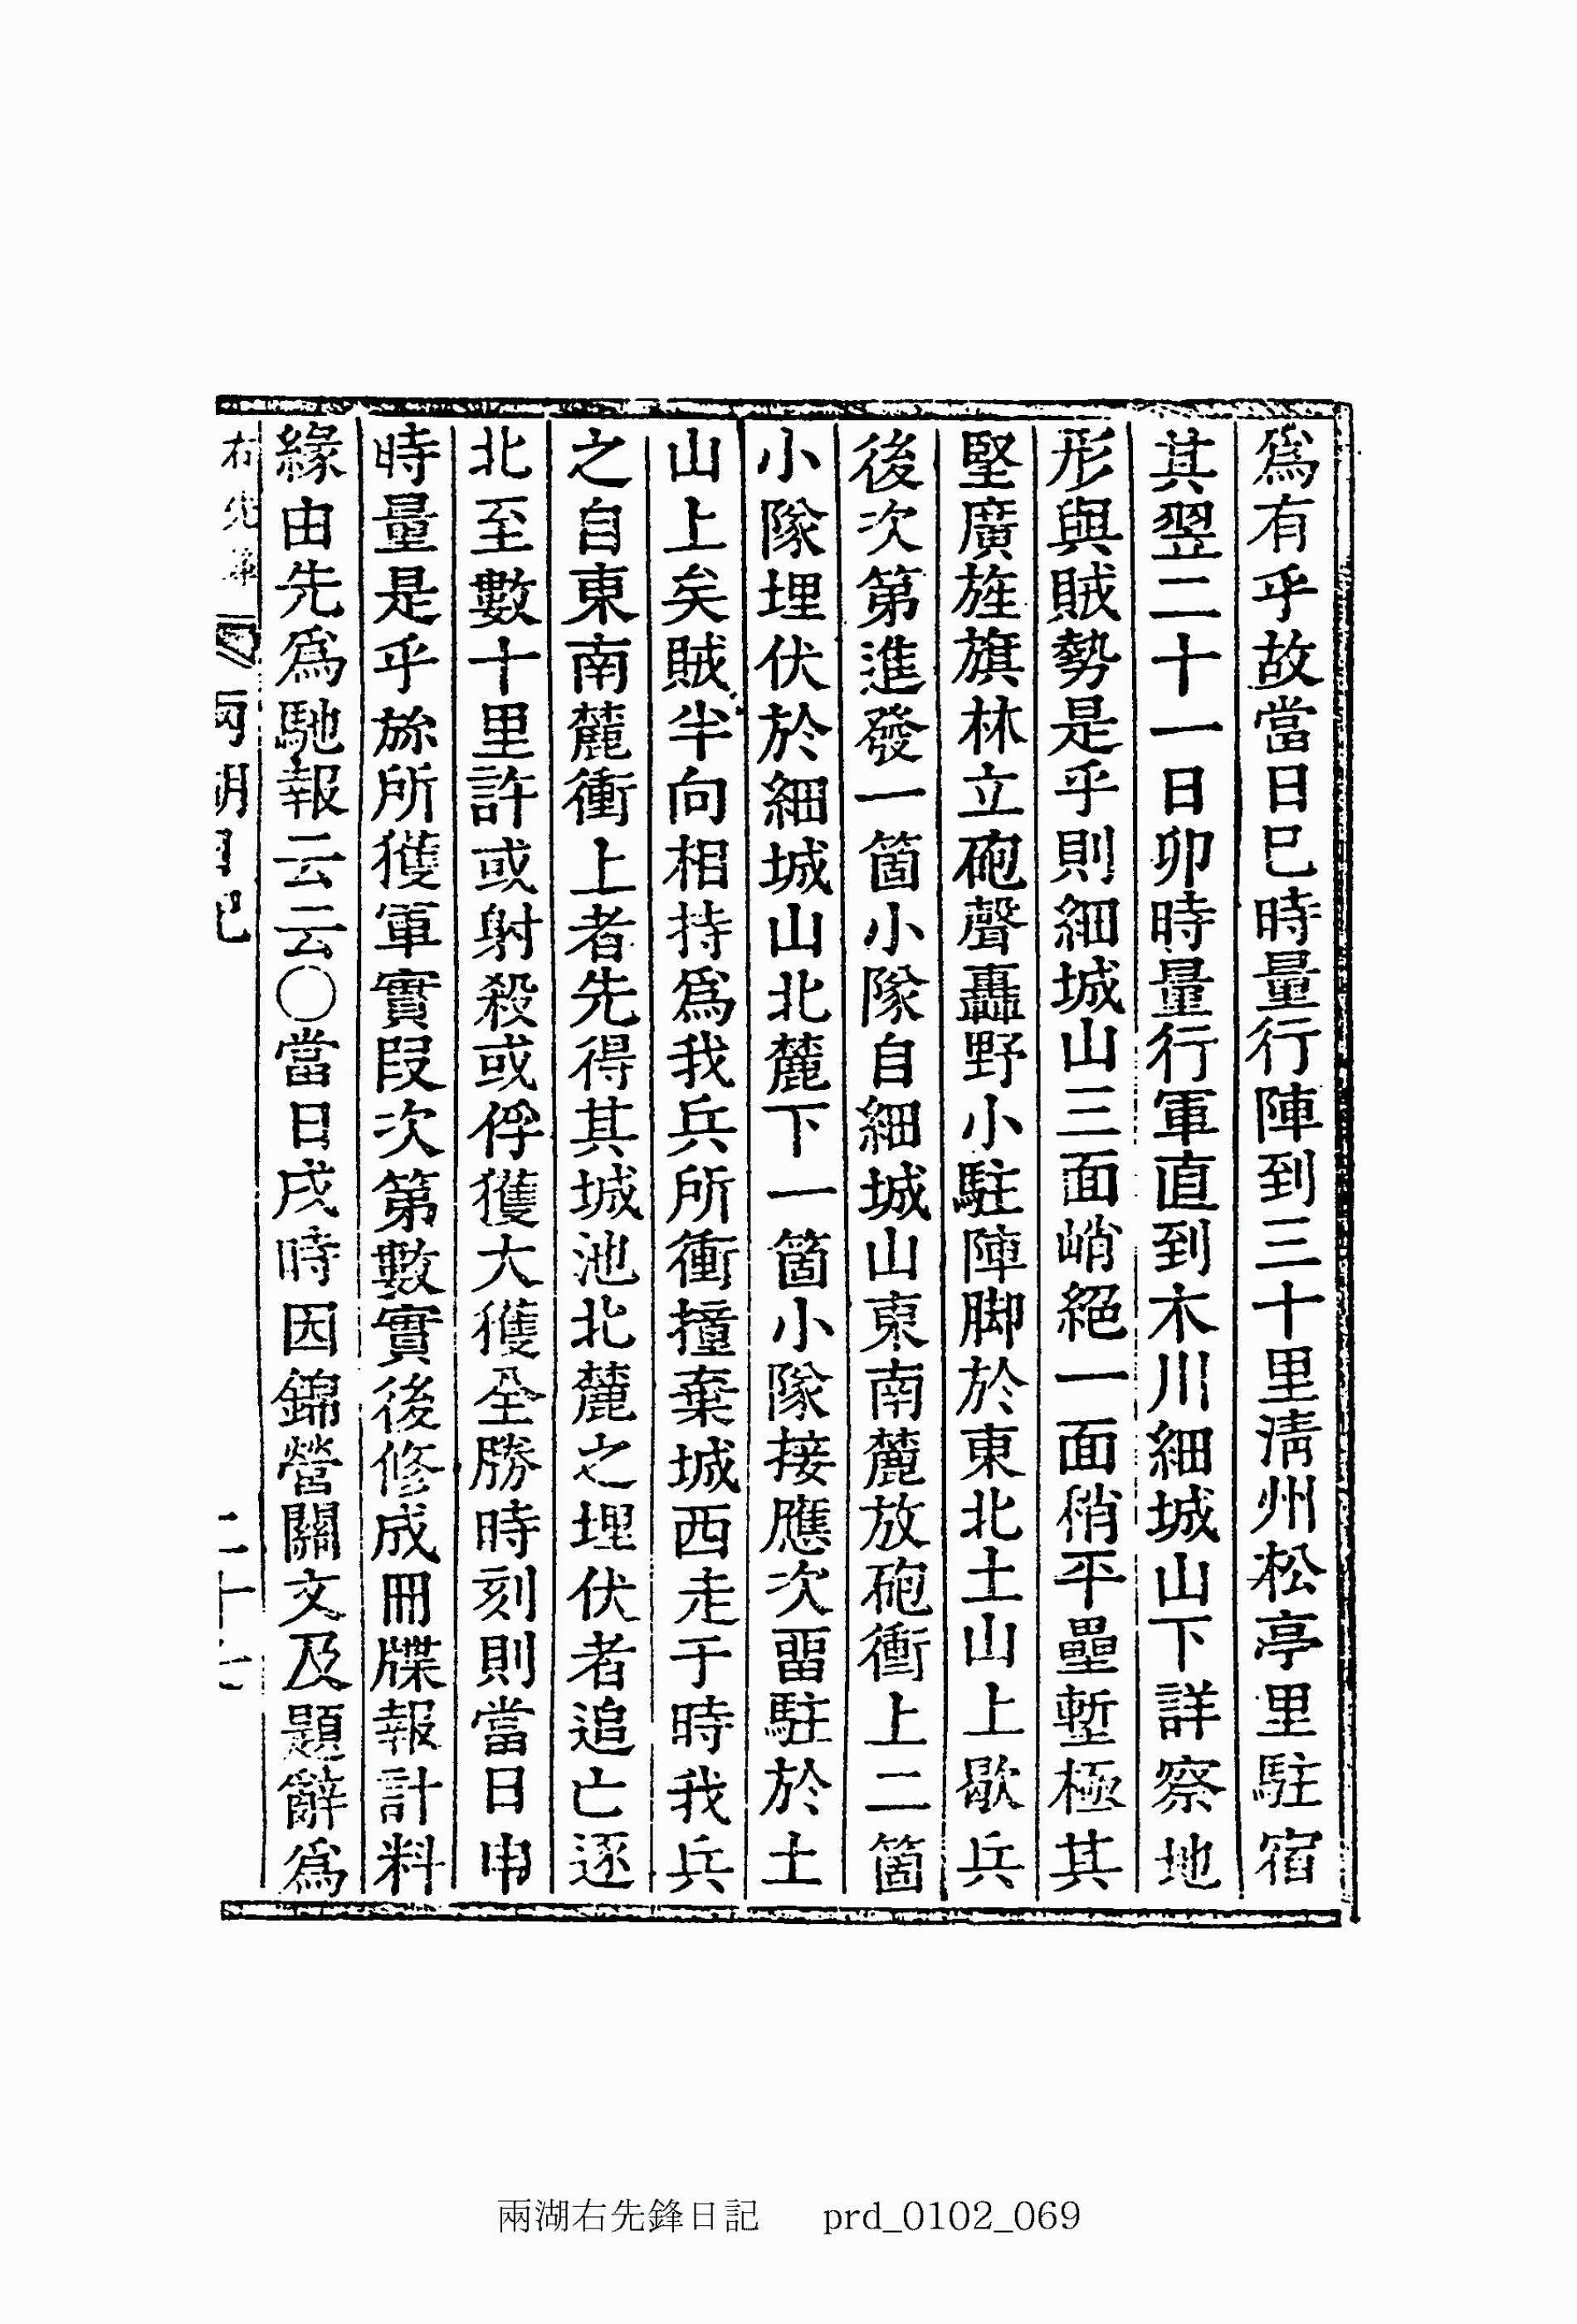 爲有乎故當日巳時量行陣到三十里淸州松亭里駐宿
其翌二十一日卯時量行軍直到木川細城山下詳察地
形與賊勢是乎則細城山三面峭絕一面稍平壘塹極其
堅廣旌旗林立砲聲轟野小駐陣脚於東北土山上歇兵
後次第進發一箇小隊自細城山東南麓放砲衝上二箇
小隊埋伏於細城山北麓下一箇小隊接應次畱駐於土
山上矣賊半向相持爲我兵所衝撞棄城西走于時我兵
之自東南麓衝上者先得其城池北麓之埋伏者追亡逐
北至數十里許或射殺或俘獲大獲全勝時刻則當日申
時量是乎旀所獲軍實段次第數實後修成冊牒報計料
緣由先爲馳報云云〇當日戌時因錦營關文及題辭爲
右先鋒 兩湖日記 二十七
兩湖右先鋒日記 prd_0102_069